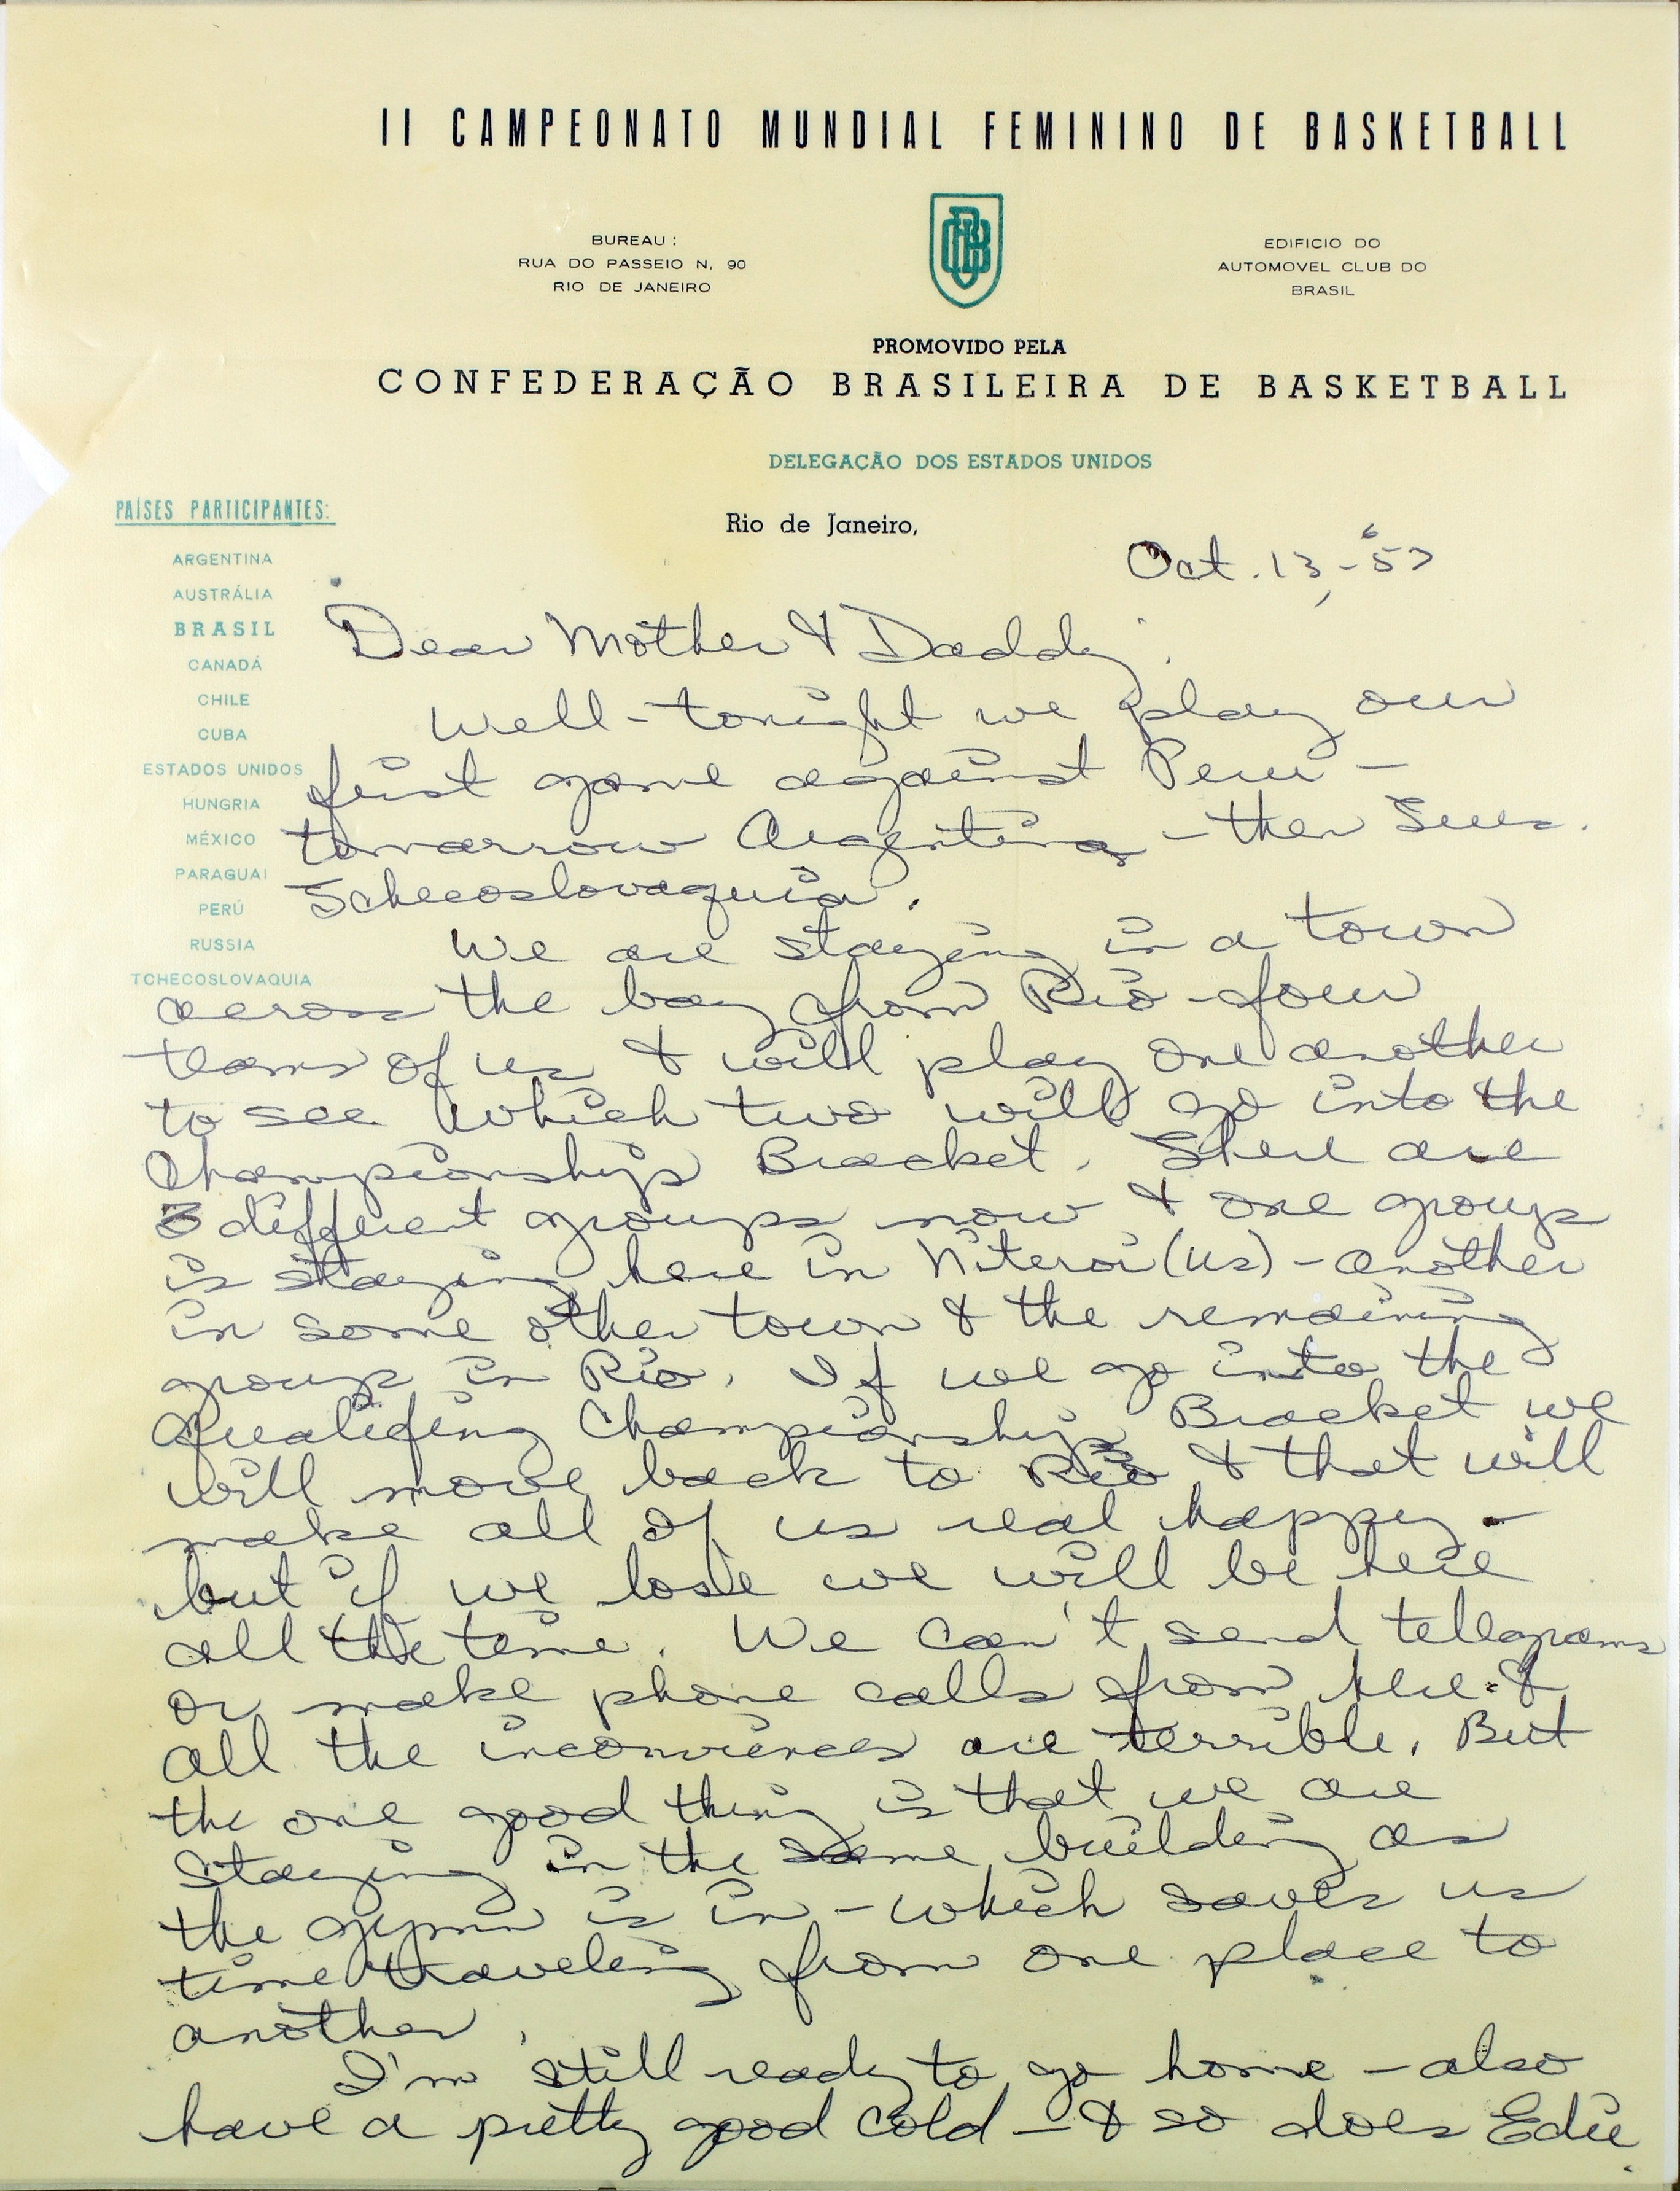 II CAMPEONATO MUNDIAL FEMININO DE BASKETBALL
BUREAU :
RUA DO PASSEIO N. 90
RIO DE JANEIRO
CBB
EDIFICIO DO
AUTOMOVEL CLUB DO
BRASIL
PROMOVIDO PELA
CONFEDERAÇÃO BRASILEIRA DE BASKETBALL
DELEGAÇÃO DOS ESTADOS UNIDOS
PAÍSES PARTICIPANTES:
ARGENTINA
AUSTRÁLIA
BRASIL
CANADÁ
CHILE
CUBA
ESTADOS UNIDOS
HUNGRIA
MÉXICO
PARAGUAI
PERÚ
RUSSIA
TCHECOSLOVAQUIA
Rio de Janeiro,
Oct. 13, - '57
Dear Mother & Daddy,
Well - tonight we play our
first game against Peru -
tomorrow Argentina - then Sun.
Schecoslovaquia.
We are staying in a town
across the bay from Rio - four
teams of us & will play one another
to see which two will go into the
Championship Bracket. There are
3 different groups now & one group
is staying here in Niteroi (us) - another
in some other town & the remaining
group in Rio. If we go into the
Qualifing Championship Bracket we
will move back to Rio & that will
make all of us real happy -
but if we lose we will be here
all the time. We can't send telegrams
or make phone calls from here &
all the inconviences are terrible. But
the one good thing is that we are
staying in the same building as
the gym is in - which saves us
time traveling from one place to
another.
I'm still ready to go home - also
have a pretty good cold - & so does Edie